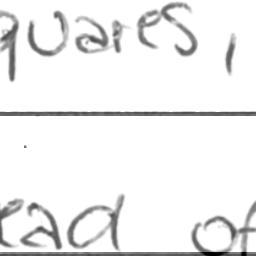 quares,
ead of